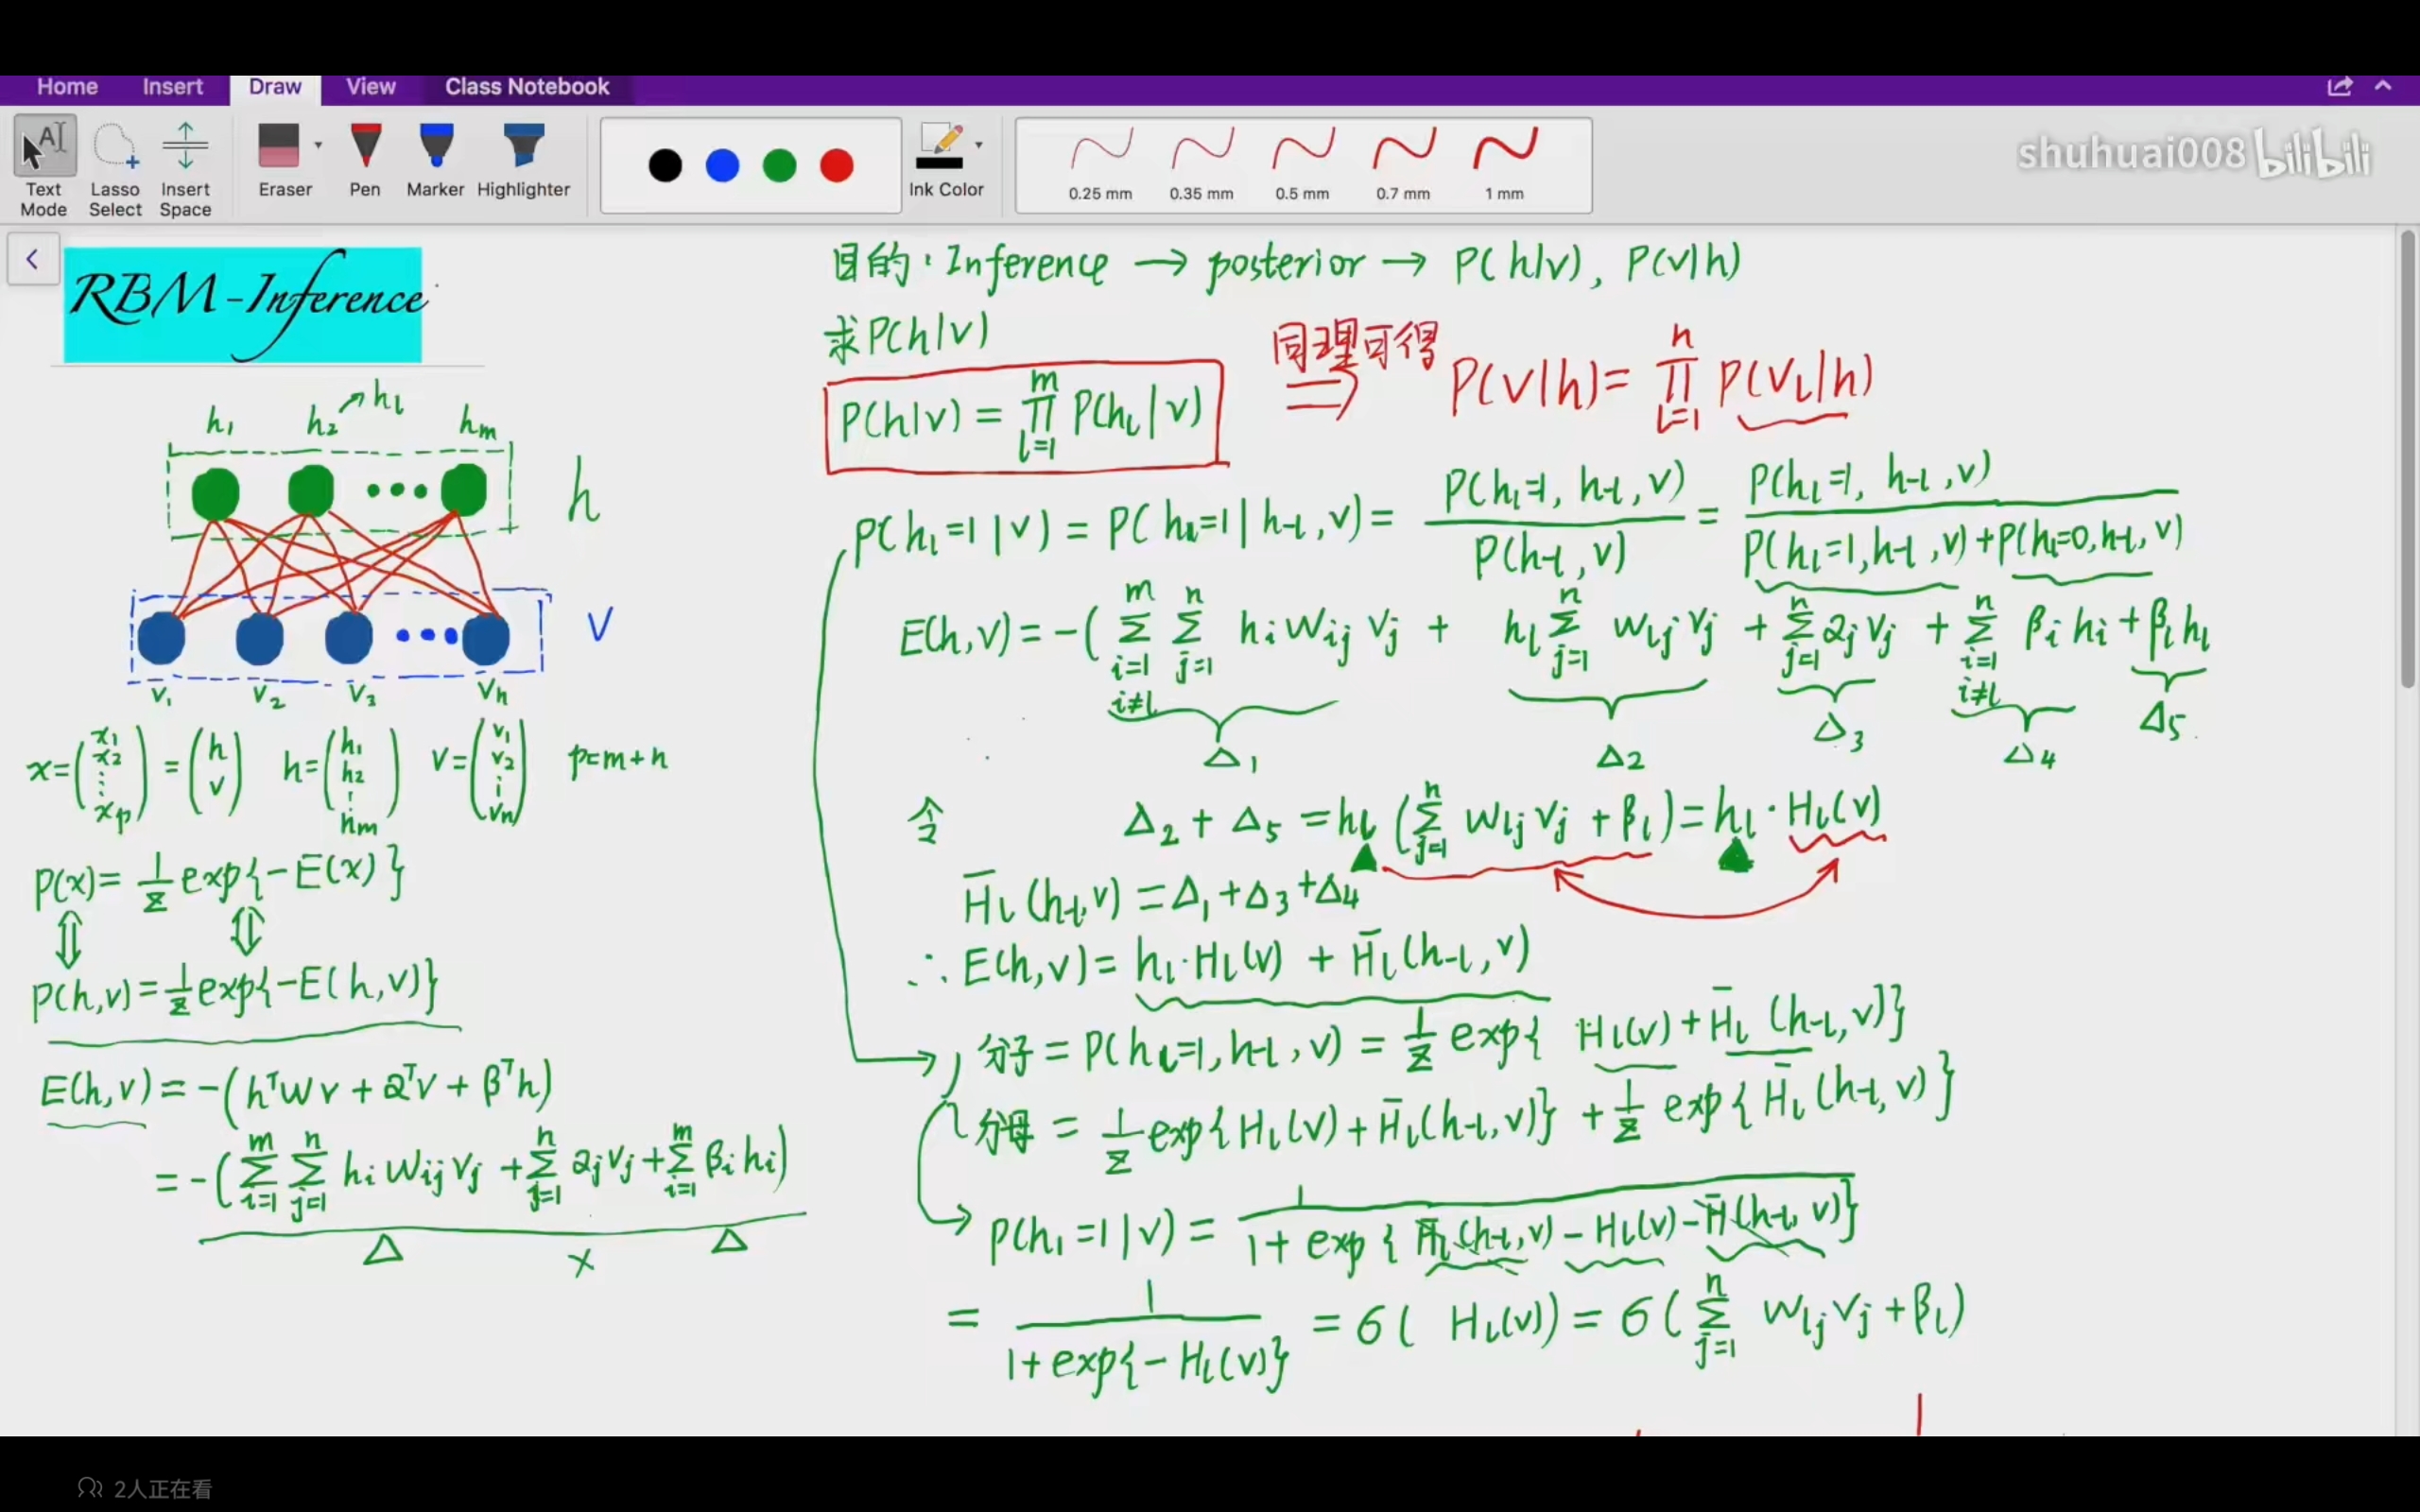 Home Insert Draw View Class Notebook
Text Mode Lasso Select Insert Space Eraser Pen Marker Highlighter Ink Color 0.25 mm 0.35 mm 0.5 mm 0.7 mm 1 mm
shuhuai008 bilibili
RBM-Inference
h₁ h₂ ↗hₗ hₘ
h
v
v₁ v₂ v₃ vₙ
x=(x₁ x₂ ⋮ xₚ) = (h v) h=(h₁ h₂ ⋮ hₘ) v=(v₁ v₂ ⋮ vₙ) p=m+n
P(x)= 1/Z exp{-E(x)}
⇕ ⇕
P(h,v)=1/Z exp{-E(h,v)}
E(h,v) = -(hᵀwv + αᵀv + βᵀh)
= -(∑_{i=1}^{m} ∑_{j=1}^{n} hᵢ wᵢⱼ vⱼ + ∑_{j=1}^{n} αⱼvⱼ + ∑_{i=1}^{m} βᵢ hᵢ)
Δ × Δ
目的: Inference → posterior → P(h|v), P(v|h)
求P(h|v)
P(h|v) = ∏_{l=1}^{m} P(hₗ|v) 同理可得 ⇒ P(v|h)= ∏_{l=1}^{n} P(vₗ|h)
P(hₗ=1|v) = P(hₗ=1|h₋ₗ,v) = P(hₗ=1, h₋ₗ, v) / P(h₋ₗ, v) = P(hₗ=1, h₋ₗ, v) / P(hₗ=1, h₋ₗ, v)+P(hₗ=0, h₋ₗ, v)
E(h,v) = -(∑_{i=1 i≠l}^{m} ∑_{j=1}^{n} hᵢ wᵢⱼ vⱼ + hₗ ∑_{j=1}^{n} wₗⱼ vⱼ + ∑_{j=1}^{n} αⱼ vⱼ + ∑_{i=1 i≠l}^{n} βᵢ hᵢ + βₗ hₗ
Δ₁ Δ₂ Δ₃ Δ₄ Δ5
令 Δ₂ + Δ5 = hₗ (∑_{j=1}^{n} wₗⱼ vⱼ + βₗ) = hₗ · Hₗ(v)
H̄ₗ(h₋ₗ,v) = Δ₁+Δ₃+Δ4
∴ E(h,v) = hₗ·Hₗ(v) + H̄ₗ(h₋ₗ, v)
分子 = P(hₗ=1, h₋ₗ, v) = 1/Z exp{ Hₗ(v) + H̄ₗ (h₋ₗ, v)}
分母 = 1/Z exp{Hₗ(v)+H̄ₗ(h₋ₗ, v)} + 1/Z exp{H̄ₗ(h₋ₗ, v)}
P(hₗ=1|v) = 1 / 1+ exp{H̄ₗ(h₋ₗ,v) - Hₗ(v) - H̄(h₋ₗ, v)}
= 1 / 1+exp{-Hₗ(v)} = σ( Hₗ(v)) = σ(∑_{j=1}^{n} wₗⱼvⱼ+βₗ)
2人正在看